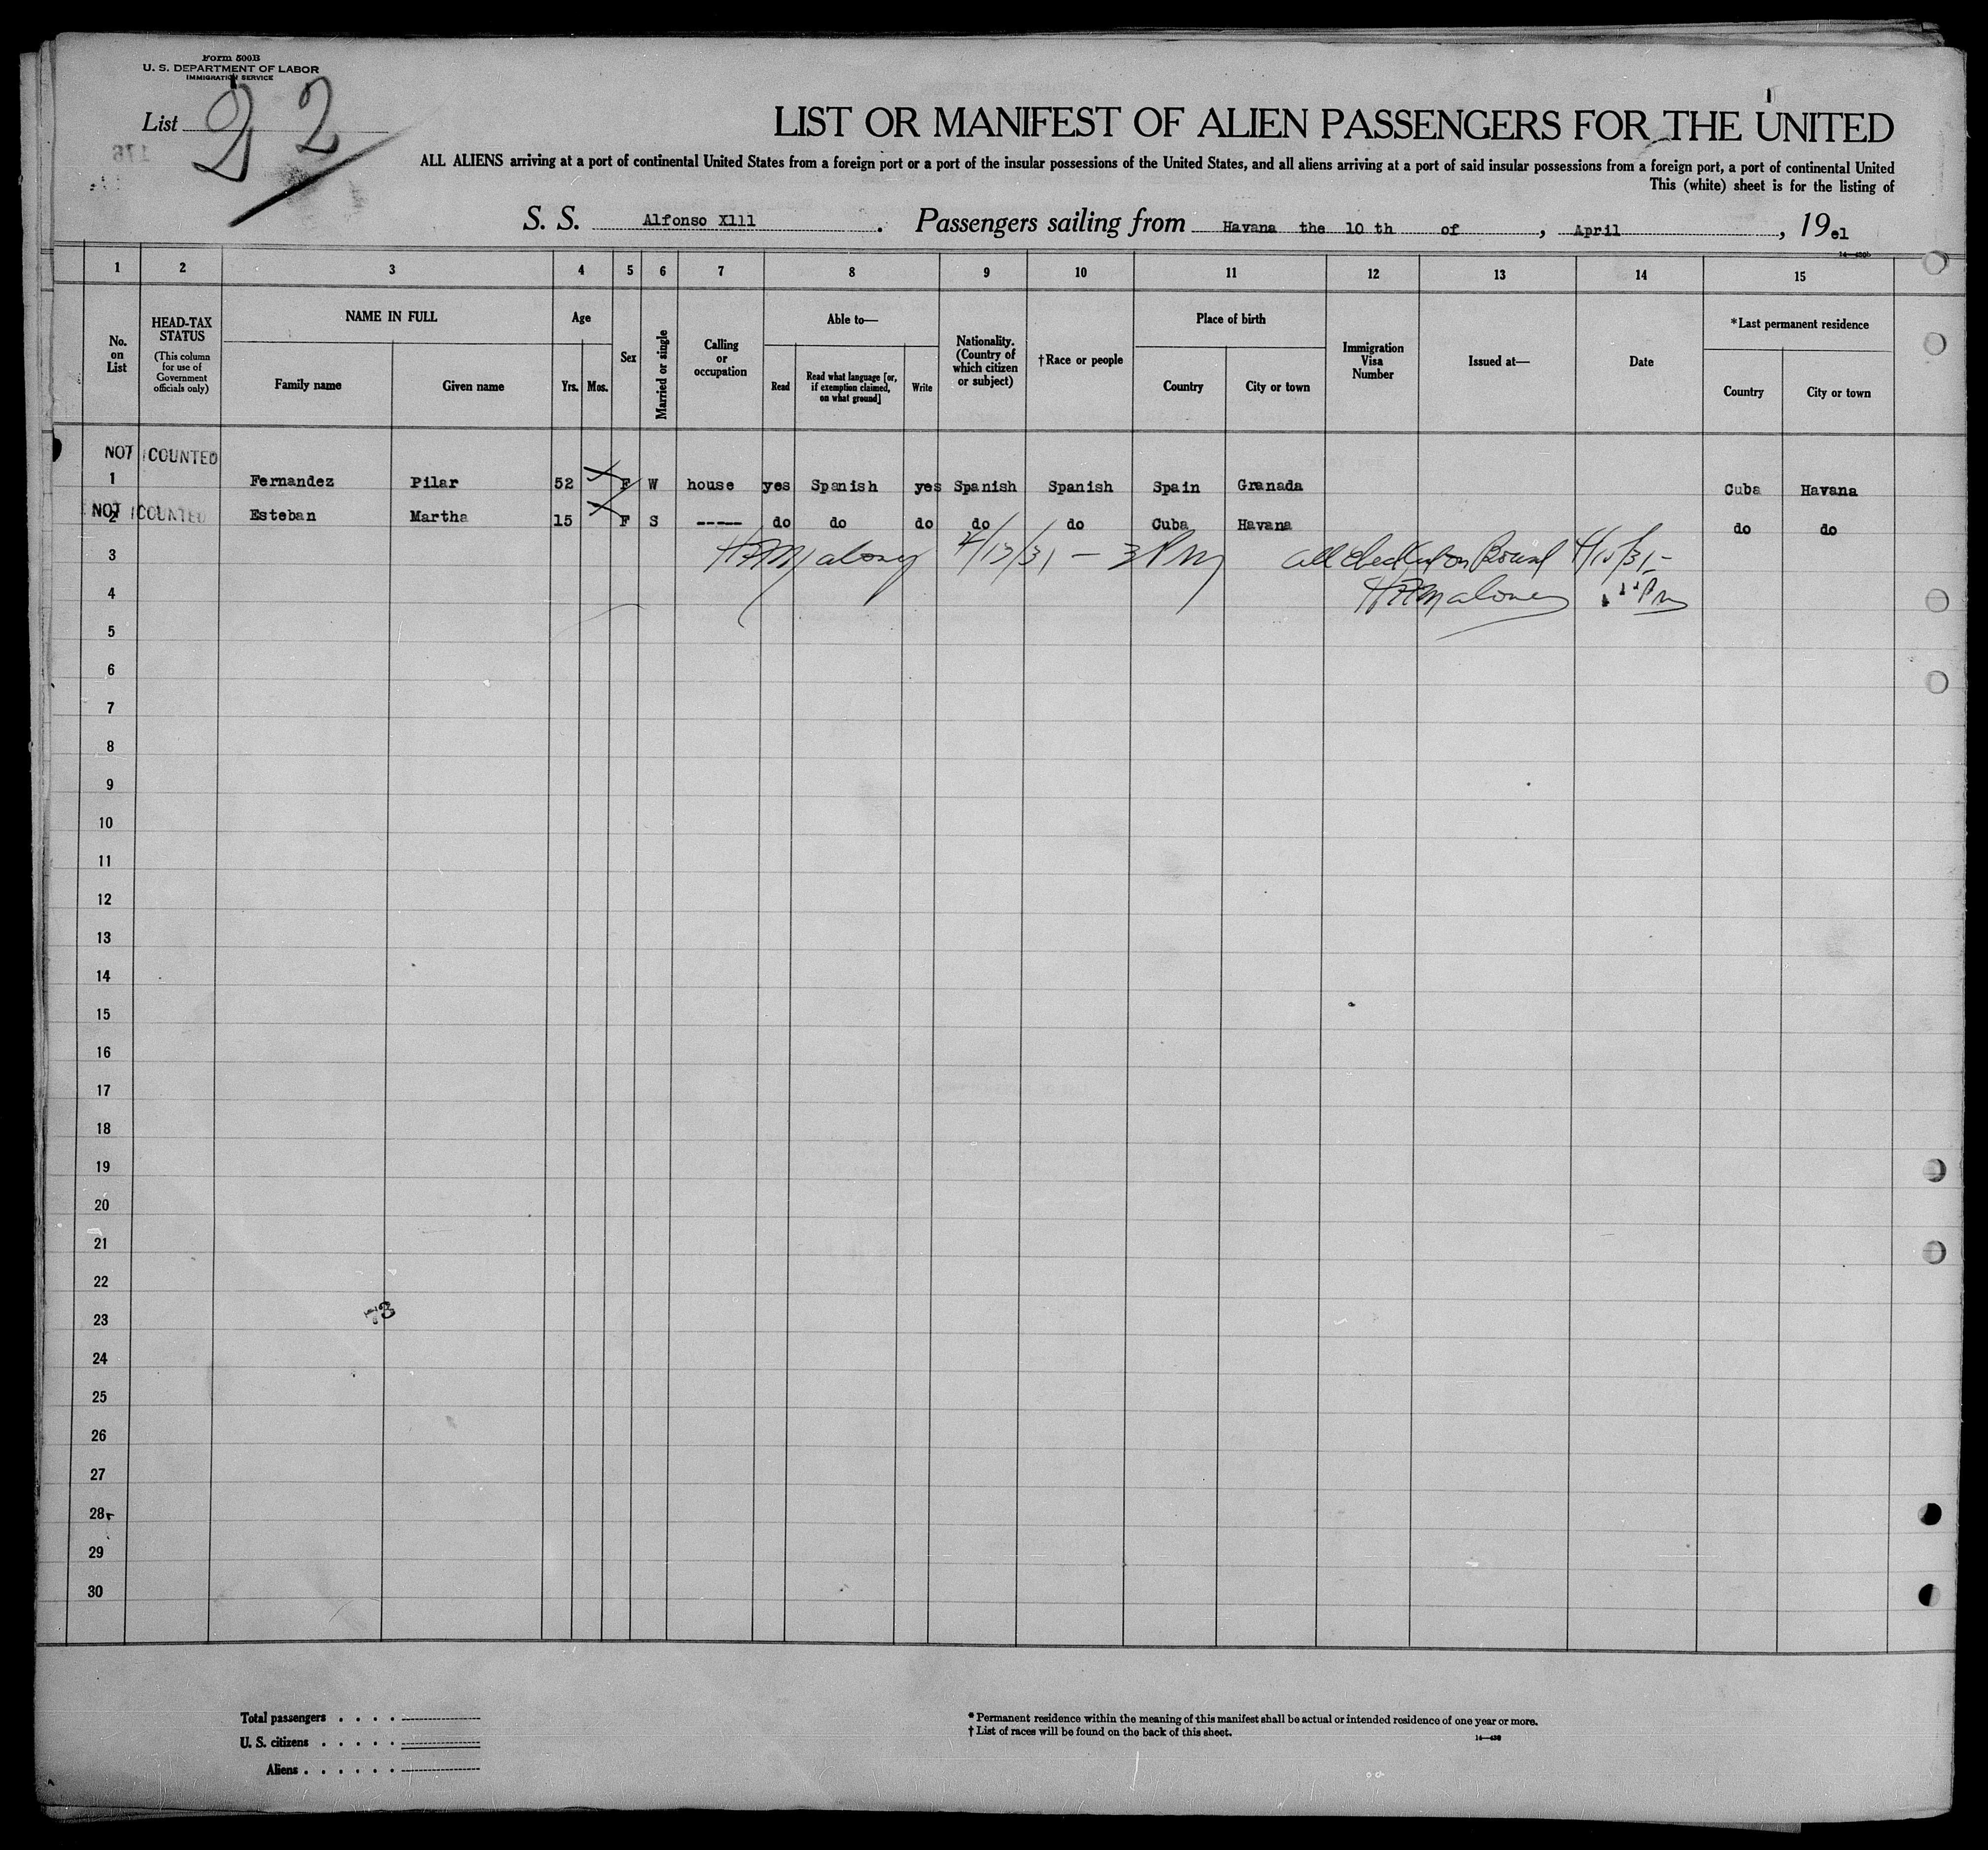 Form 500B
U. S. DEPARTMENT OF LABOR
IMMIGRATION SERVICE
List 22
LIST OR MANIFEST OF ALIEN PASSENGERS FOR THE UNITED
ALL ALIENS arriving at a port of continental United States from a foreign port or a port of the insular possessions of the United States, and all aliens arriving at a port of said insular possessions from a foreign port, a port of continental United
This (white) sheet is for the listing of
S. S. Alfonso Xlll . Passengers sailing from Havana the 10 th of , April , 19el
1 2 3 4 5 6 7 8 9 10 11 12 13 14 15
No. on List
HEAD-TAX STATUS
(This column for use of Government officials only)
NAME IN FULL
Family name Given name
Age
Yrs. Mos.
Sex
Married or single
Calling or occupation
Able to—
Read
Read what language [or, if exemption claimed, on what ground]
Write
Nationality. (Country of which citizen or subject)
†Race or people
Place of birth
Country City or town
Immigration Visa Number
Issued at—
Date
*Last permanent residence
Country City or town
NOT COUNTED
1 Fernandez Pilar 52 F W house yes Spanish yes Spanish Spanish Spain Granada Cuba Havana
NOT COUNTED
2 Esteban Martha 15 F S ----- do do do do do Cuba Havana do do
3 HFMaloney 4/13/31 - 3 PM all checked on Board
4 HFMaloney Pm
5
6
7
8
9
10
11
12
13
14
15
16
17
18
19
20
21
22
23
24
25
26
27
28
29
30
Total passengers . . . .
U. S. citizens . . . . .
Aliens . . . . . .
* Permanent residence within the meaning of this manifest shall be actual or intended residence of one year or more.
† List of races will be found on the back of this sheet.